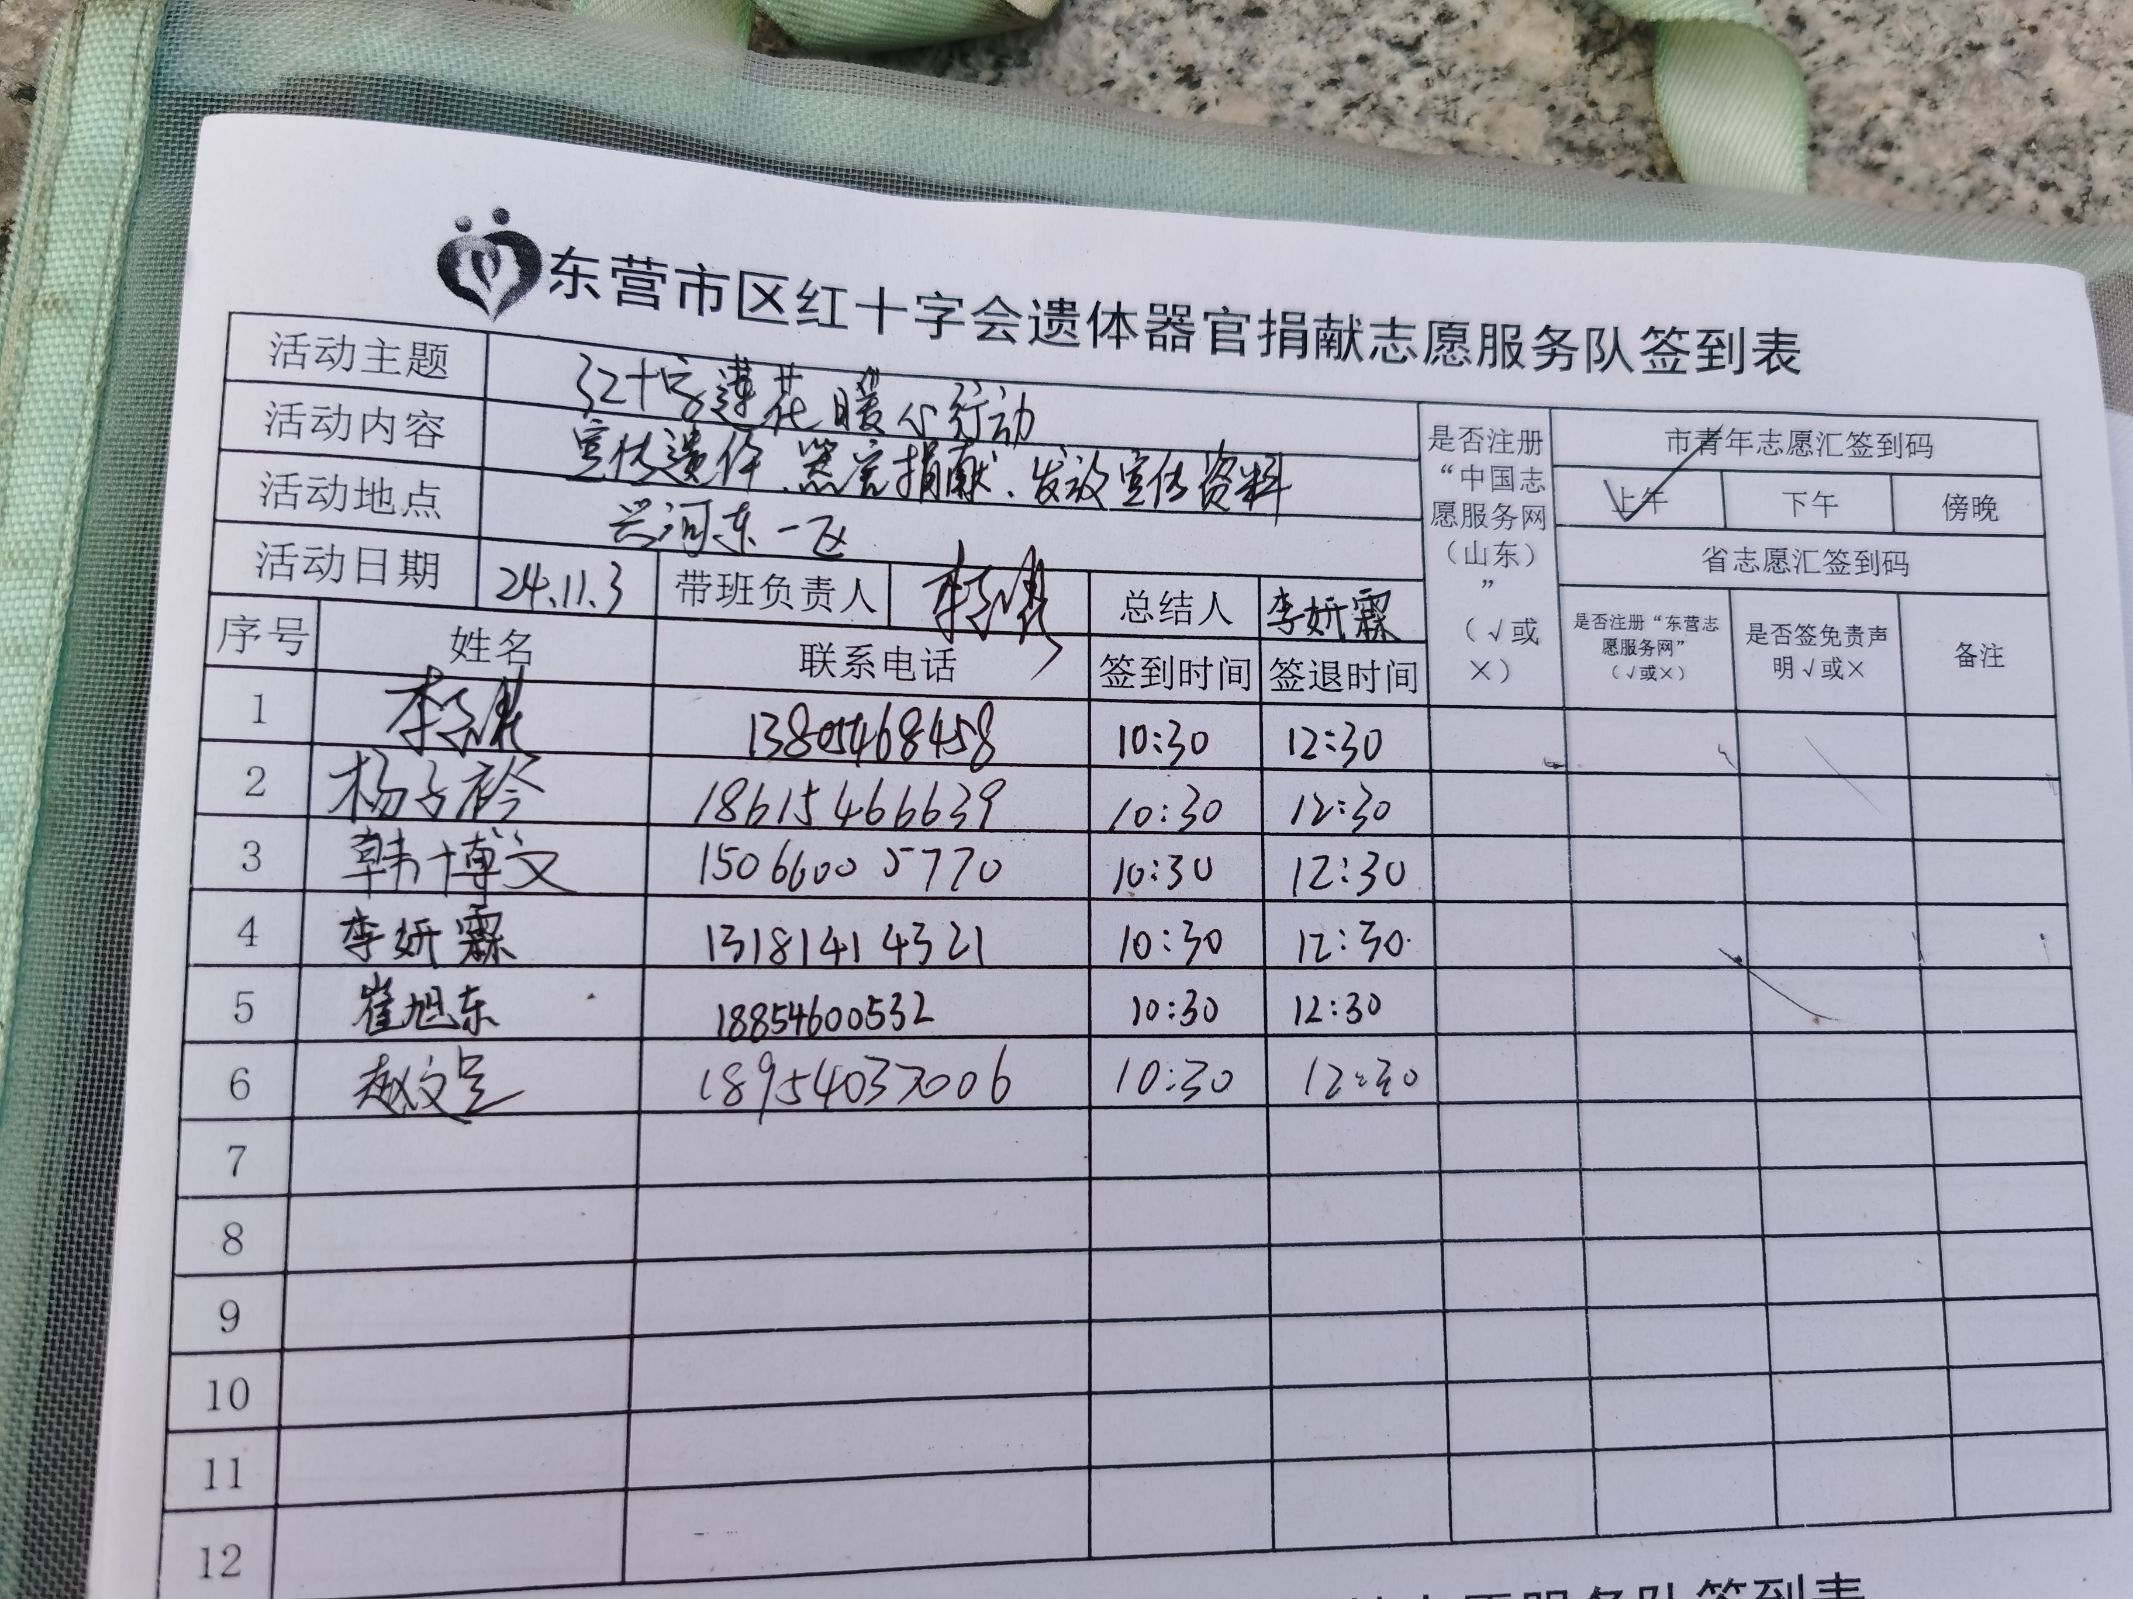 东营市区红十字会遗体器官捐献志愿服务队签到表
活动主题 红十字莲花暖心行动
活动内容 宣传遗体、器官捐献、发放宣传资料
活动地点 兴河东一区
活动日期 24.11.3 带班负责人 李 总结人 李妍霖
是否注册“中国志愿服务网（山东）”（√或×）
市青年志愿汇签到码
上午 下午 傍晚
省志愿汇签到码
是否注册“东营志愿服务网”（√或×） 是否签免责声明√或× 备注
序号 姓名 联系电话 签到时间 签退时间
1 李 13805468458 10:30 12:30
2 杨子衿 18615466639 10:30 12:30
3 韩博文 15066005770 10:30 12:30
4 李妍霖 13181414321 10:30 12:30
5 崔旭东 18854600532 10:30 12:30
6 赵文 18954037006 10:30 12:30
7
8
9
10
11
12
志愿服务队签到表